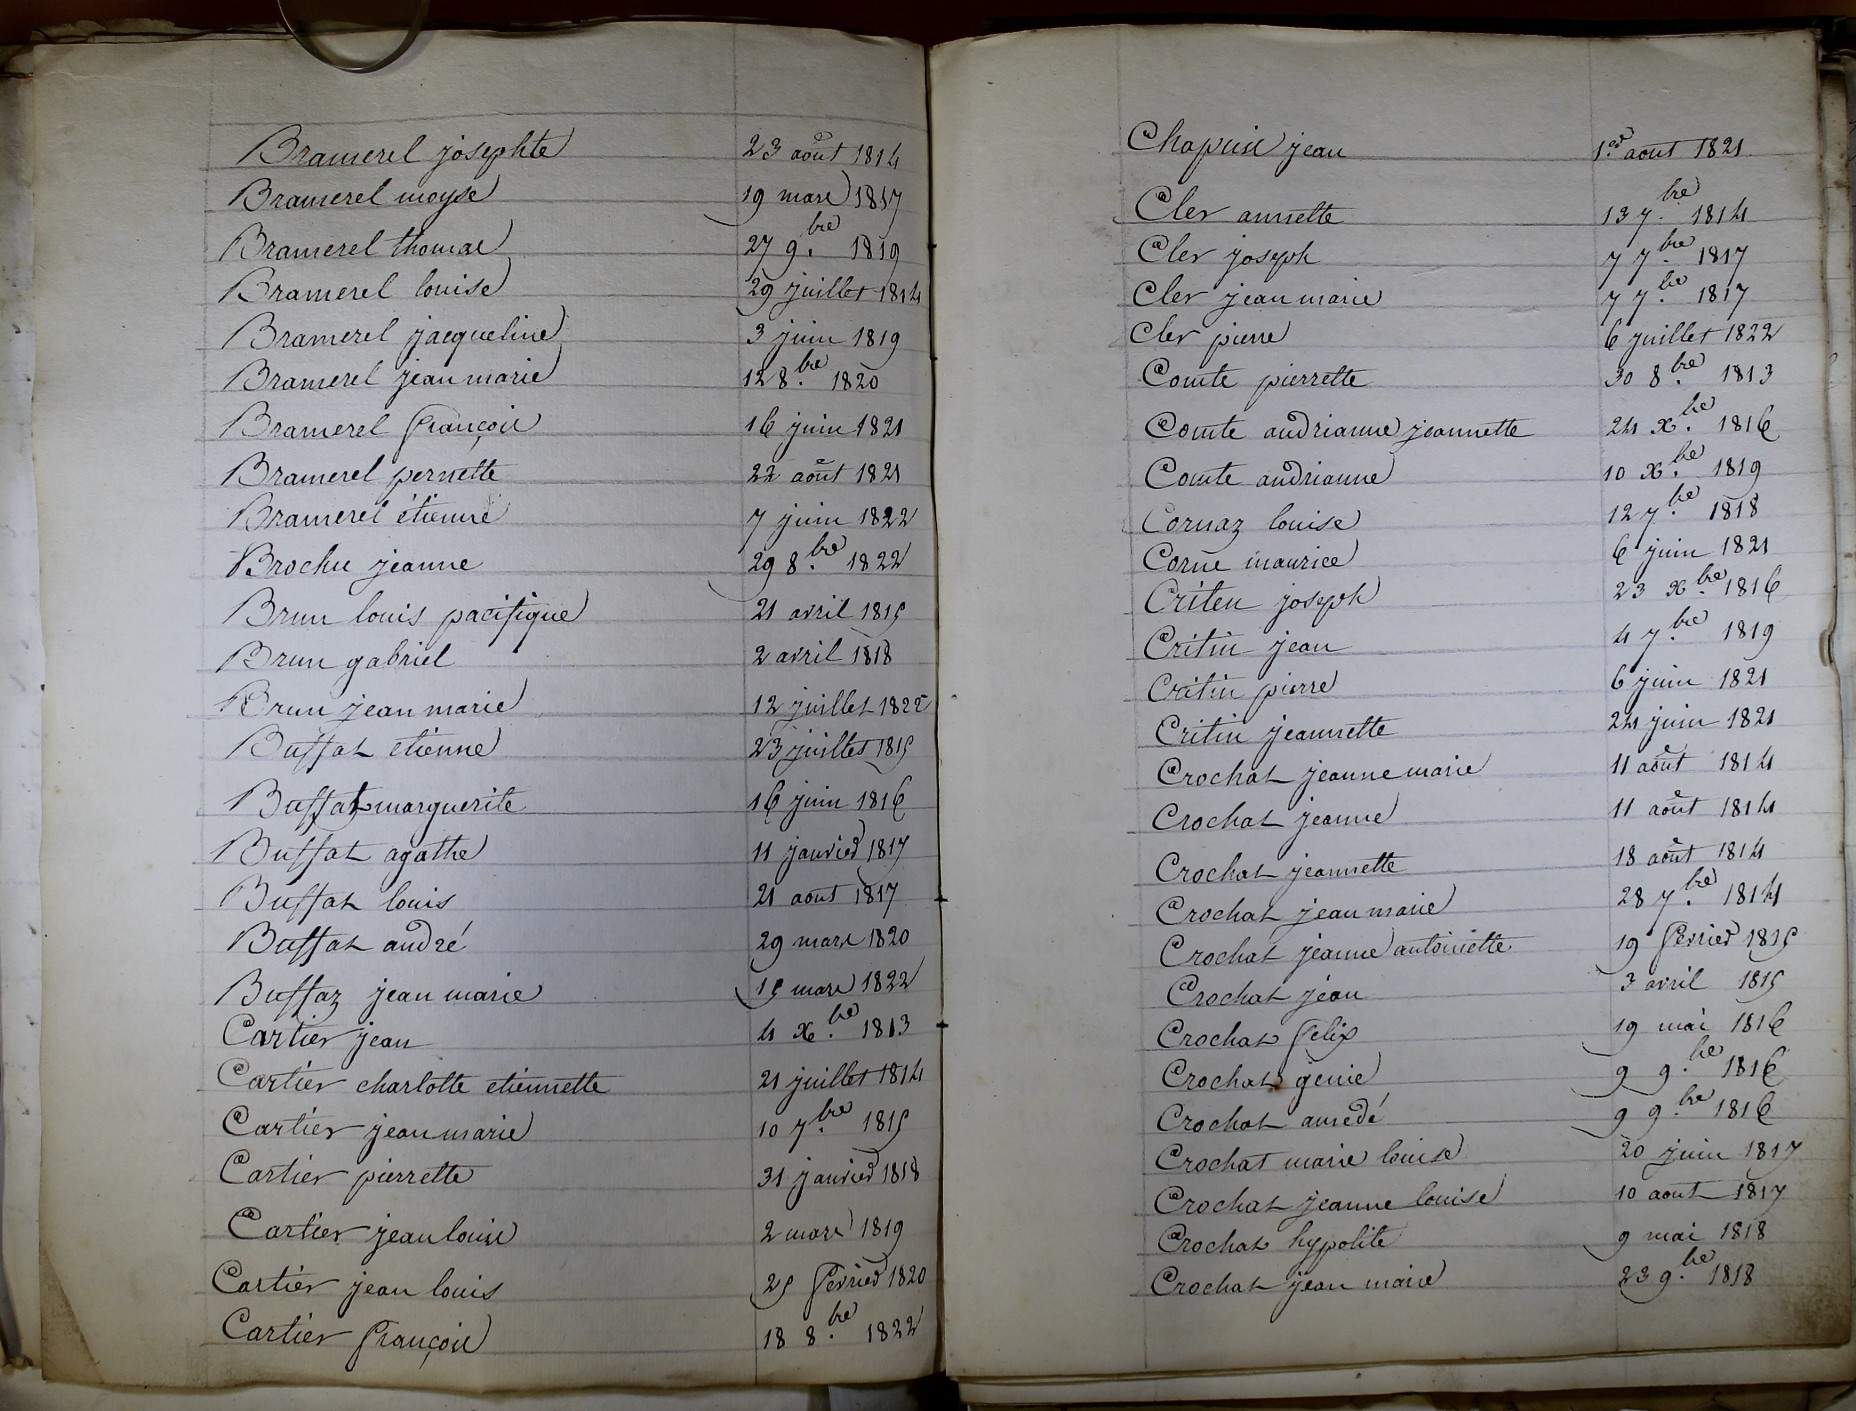 Bramerel josephte 23 août 1814
Bramerel moyse 19 mars 1817
Bramerel thomas 27 9.bre 1819
Bramerel louise 29 juillet 1814
Bramerel jacqueline 3 juin 1819
Bramerel jean marie 12 8.bre 1820
Bramerel françois 16 juin 1821
Bramerel pernette 22 août 1821
Bramerel étienne 7 juin 1822
Brochu jeanne 29 8.bre 1822
Brun louis pacifique 21 avril 1815
Brun gabriel 2 avril 1818
Brun jean marie 12 juillet 1822
Buffat etienne 23 juillet 1815
Buffat marguerite 16 juin 1816
Buffat agathe 11 janvier 1817
Buffat louis 21 aout 1817
Buffat andré 29 mars 1820
Buffaz jean marie 15 mars 1822
Cartier jean 4 x.bre 1813
Cartier charlotte etiennette 21 juillet 1814
Cartier jean marie 10 7.bre 1815
Cartier pierrette 31 janvier 1818
Cartier jean louis 2 mars 1819
Cartier jean louis 25 fevrier 1820
Cartier françois 18 8.bre 1822
Chapuis jean 1.er aout 1821
Cler annette 13 7.bre 1814
Cler joseph 7 7.bre 1817
Cler jean marie 7 7.bre 1817
Cler pierre 6 juillet 1822
Comte pierrette 30 8.bre 1813
Comte andrianne jeannette 24 x.bre 1816
Comte andrianne 10 x.bre 1819
Cornaz louise 12 7.bre 1818
Corne maurice 6 juin 1821
Criten joseph 23 x.bre 1816
Critin jean 4 7.bre 1819
Critin pierre 6 juin 1821
Critin jeannette 24 juin 1821
Crochat jeanne marie 11 août 1814
Crochat jeanne 11 août 1814
Crochat jeannette 18 août 1814
Crochat jean marie 28 7.bre 1814
Crochat jeanne antoinette 19 fevrier 1815
Crochat jean 3 avril 1815
Crochat felix 19 mai 1816
Crochat genie 9 9.bre 1816
Crochat amedé 9 9.bre 1816
Crochat marie louise 20 juin 1817
Crochat jeanne louise 10 aout 1817
Crochat hypolite 9 mai 1818
Crochat jean marie 23 9.bre 1818